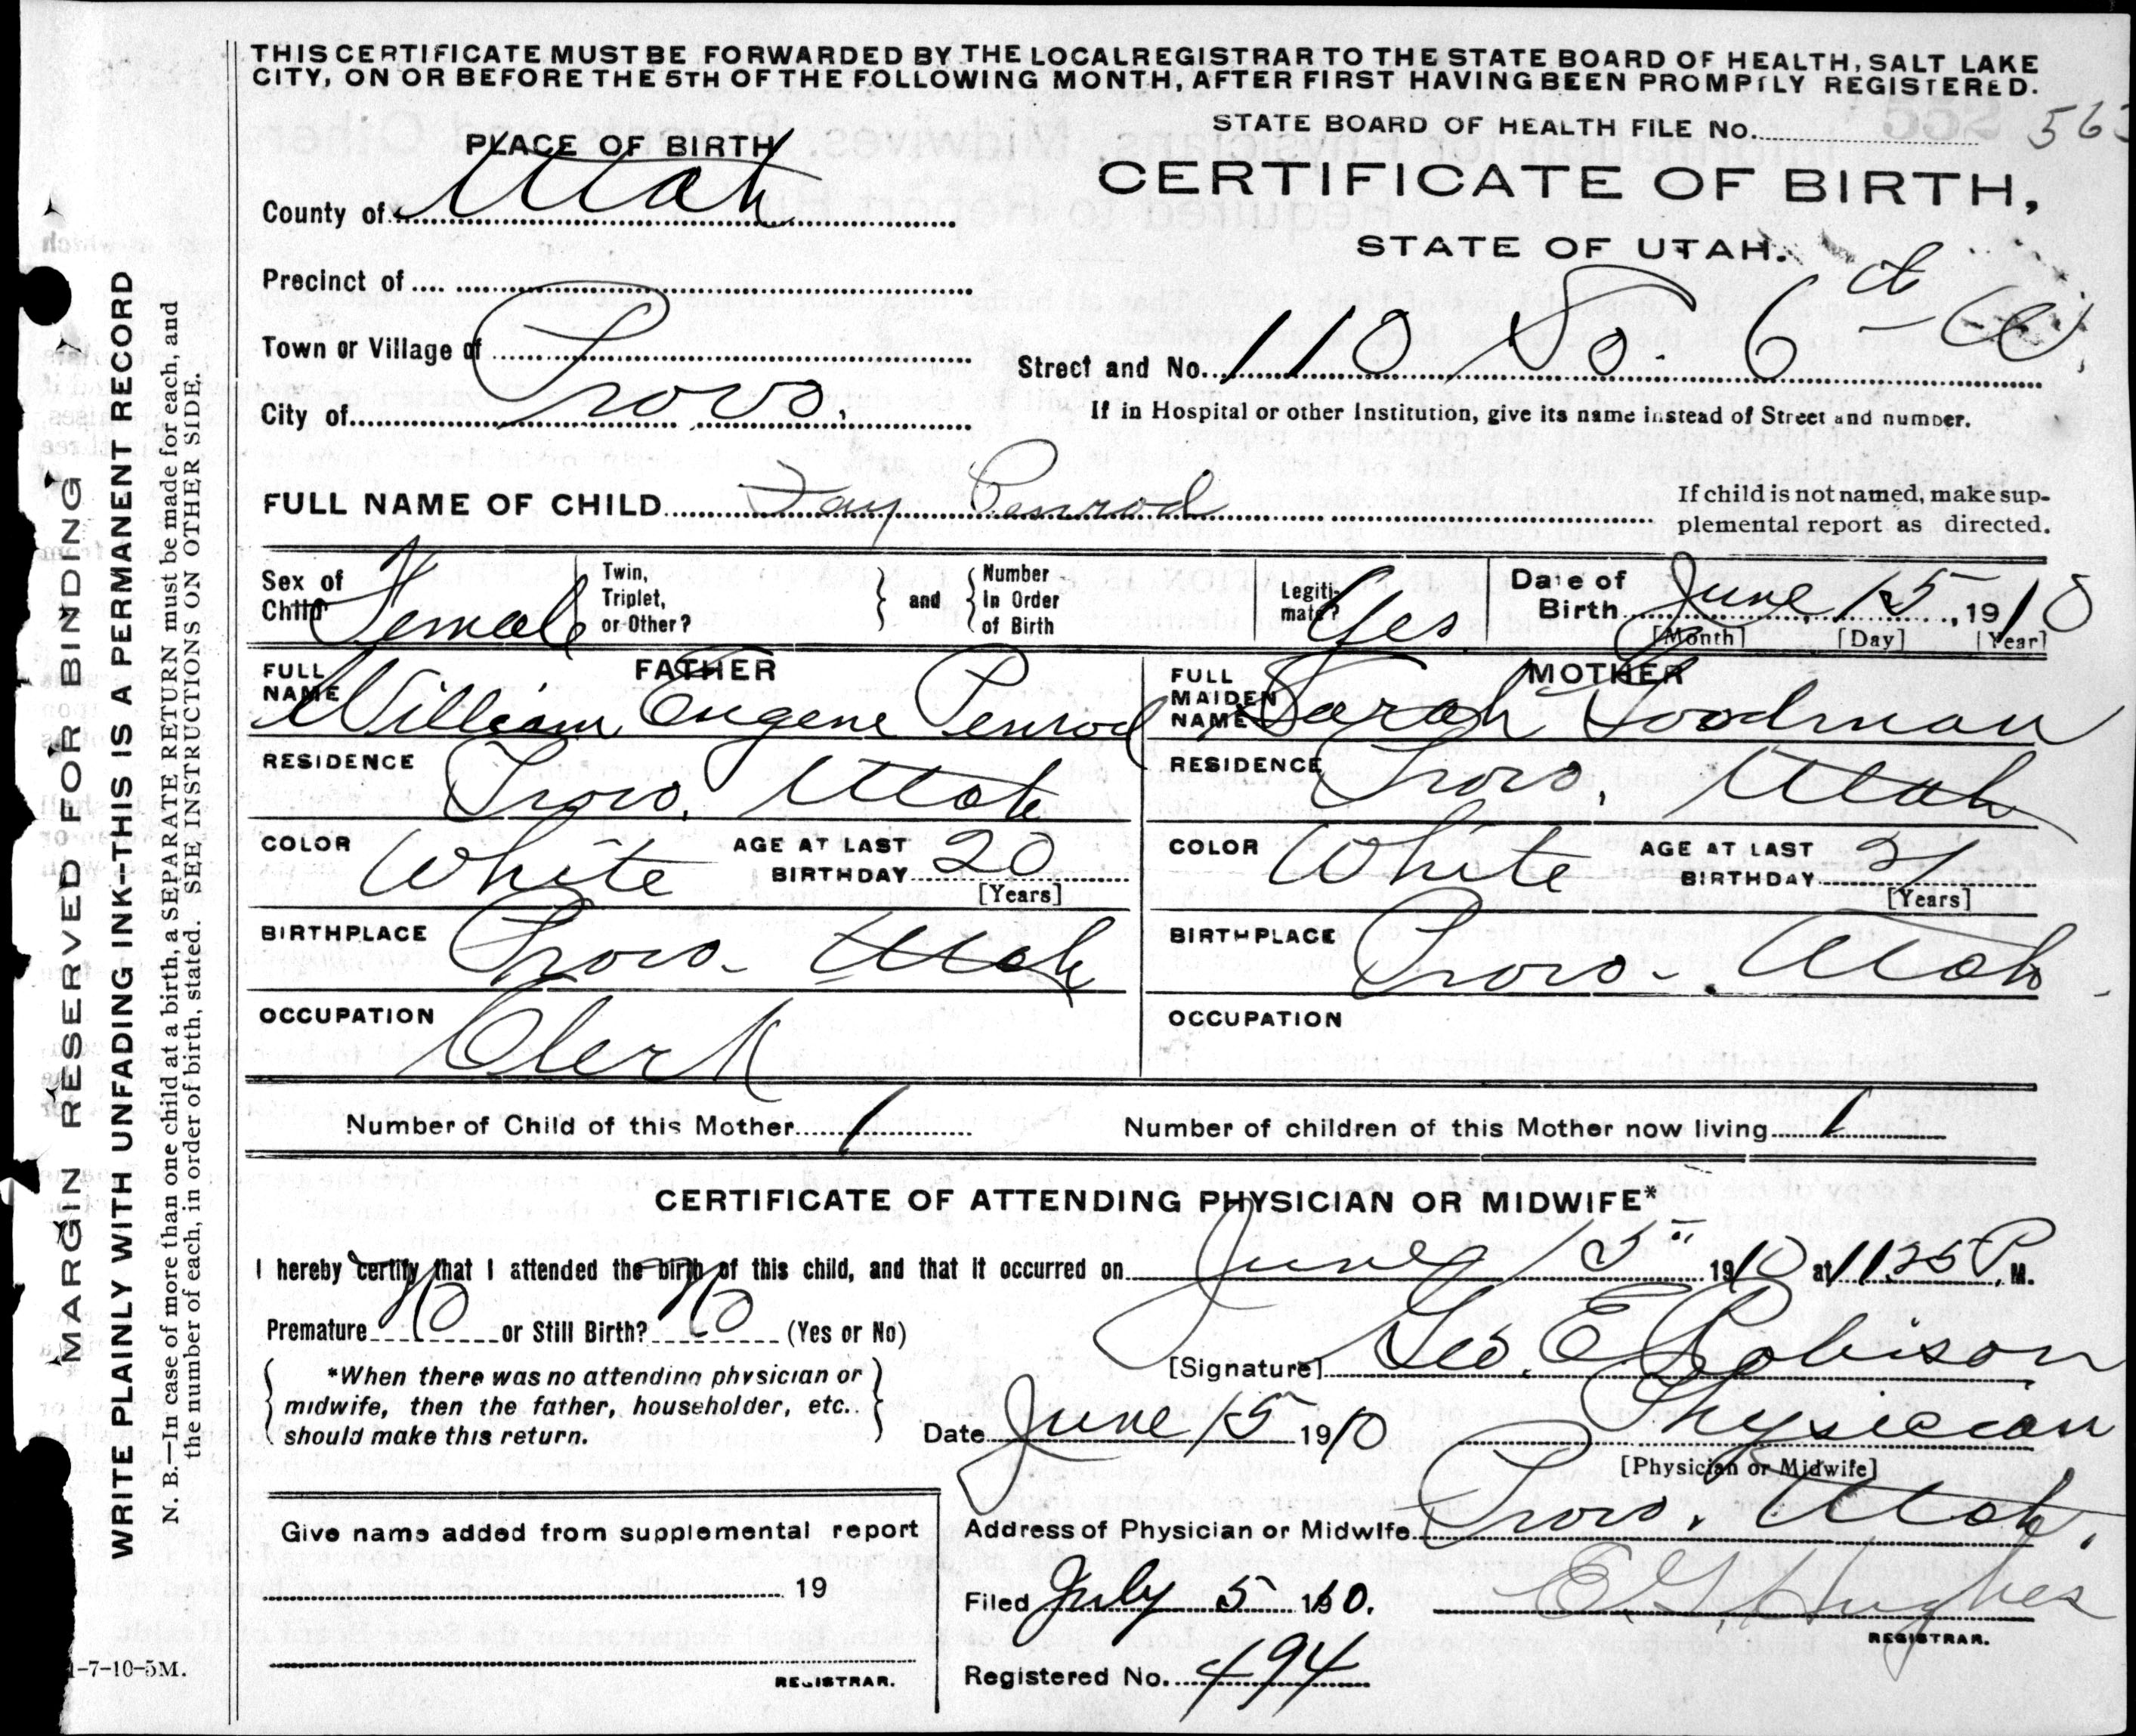 THIS CERTIFICATE MUST BE FORWARDED BY THE LOCAL REGISTRAR TO THE STATE BOARD OF HEALTH, SALT LAKE
CITY, ON OR BEFORE THE 5TH OF THE FOLLOWING MONTH, AFTER FIRST HAVING BEEN PROMPTLY REGISTERED.
STATE BOARD OF HEALTH FILE No.
PLACE OF BIRTH
CERTIFICATE OF BIRTH,
STATE OF UTAH.
County of Utah
Precinct of
Town or Village of
City of Provo.
Street and No. 110 So. 6
If in Hospital or other Institution, give its name instead of Street and number.
FULL NAME OF CHILD Fay Penrod
If child is not named, make sup-
plemental report as directed.
Sex of Child Female
Twin, Triplet, or Other?
and
Number In Order of Birth
Legiti-mate? Yes
Date of Birth June 15, 1910
[Month] [Day] [Year]
FATHER
FULL NAME William Eugene Penrod
MOTHER
FULL MAIDEN NAME Sarah Goodman
RESIDENCE Provo, Utah
RESIDENCE Provo, Utah
COLOR White AGE AT LAST BIRTHDAY 20 [Years]
COLOR White AGE AT LAST BIRTHDAY 21 [Years]
BIRTHPLACE Provo - Utah
BIRTHPLACE Provo - Utah
OCCUPATION Clerk
OCCUPATION
Number of Child of this Mother 1
Number of children of this Mother now living 1
CERTIFICATE OF ATTENDING PHYSICIAN OR MIDWIFE*
I hereby certify that I attended the birth of this child, and that it occurred on June 15" 1910 at 1135 P. M.
Premature No or Still Birth? No (Yes or No)
[Signature] Geo. E Robison
*When there was no attending physician or
midwife, then the father, householder, etc.
should make this return.
Date June 15 1910
Physician
[Physician or Midwife]
Address of Physician or Midwife Provo. Utah.
Give name added from supplemental report
19
REGISTRAR.
Filed July 5 1910.
E G Hughes
REGISTRAR.
Registered No. 494
1-7-10-5M.
MARGIN RESERVED FOR BINDING
WRITE PLAINLY WITH UNFADING INK—THIS IS A PERMANENT RECORD
N. B.—In case of more than one child at a birth, a SEPARATE RETURN must be made for each, and
the number of each, in order of birth, stated. SEE INSTRUCTIONS ON OTHER SIDE.